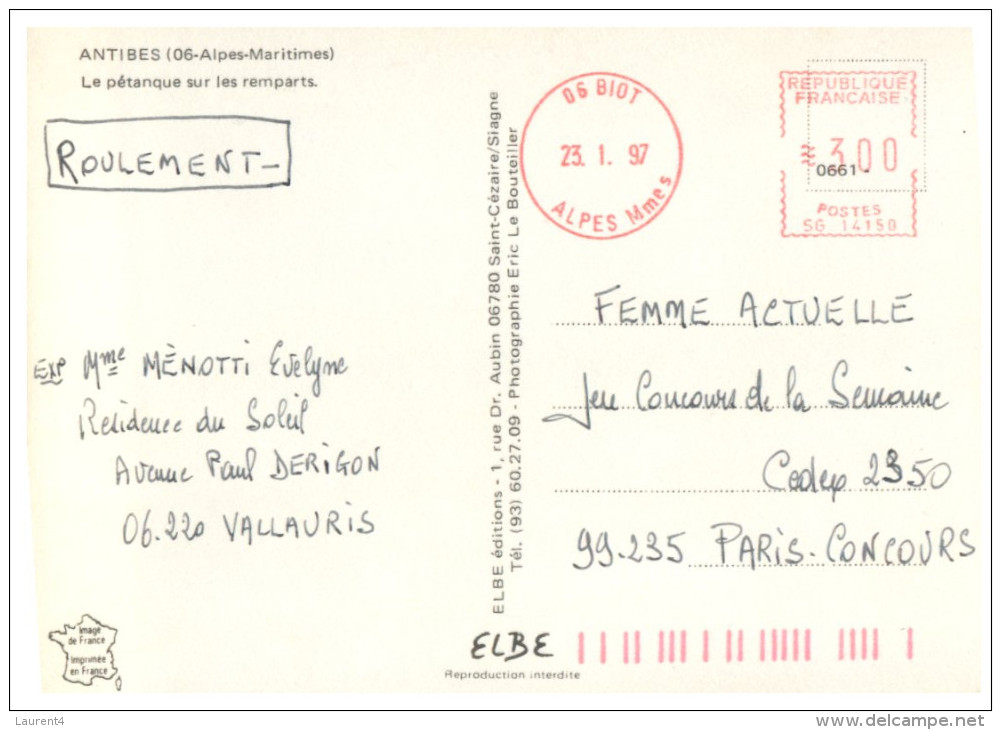 ANTIBES (06-Alpes-Maritimes)
Le pétanque sur les remparts.
ROULEMENT-
06 BIOT
23. 1. 97
ALPES Mmes
REPUBLIQUE
FRANCAISE
3,00
0661 -
POSTES
SG 14150
EXP Mme MÈNOTTi Evelyne
Residence du Soleil
Avenue Paul DERIGON
06.220 VALLAURIS
ELBE éditions - 1, rue Dr. Aubin 06780 Saint-Cézaire/Siagne
Tél. (93) 60.27.09 - Photographie Eric Le Bouteiller
FEMME ACTUELLE
Jeu Concours de la Semaine
Cedex 2350
99-235 PARIS-CONCOURS
Image
de France
Imprimée
en France
ELBE
Reproduction interdite
Laurent4
delcampe.net